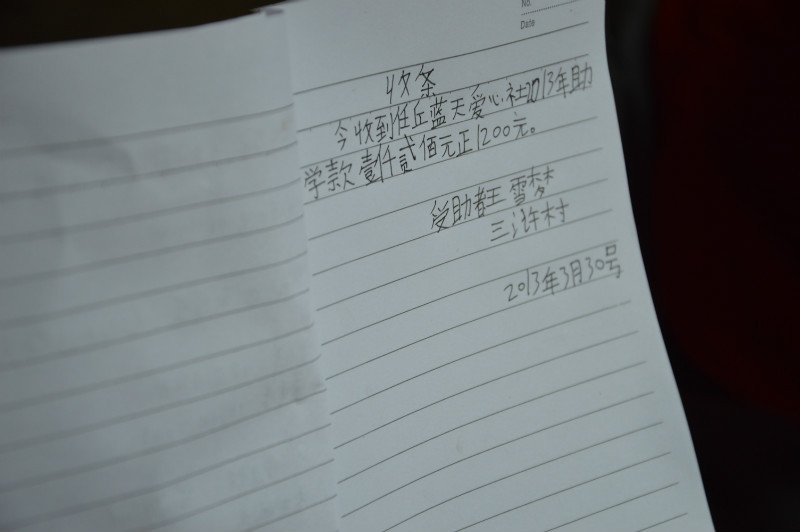 No.
Date
收条
今收到任丘蓝天爱心社2013年助
学款壹仟贰佰元正1200元。
受助者王雪梦
三浒村
2013年3月30号